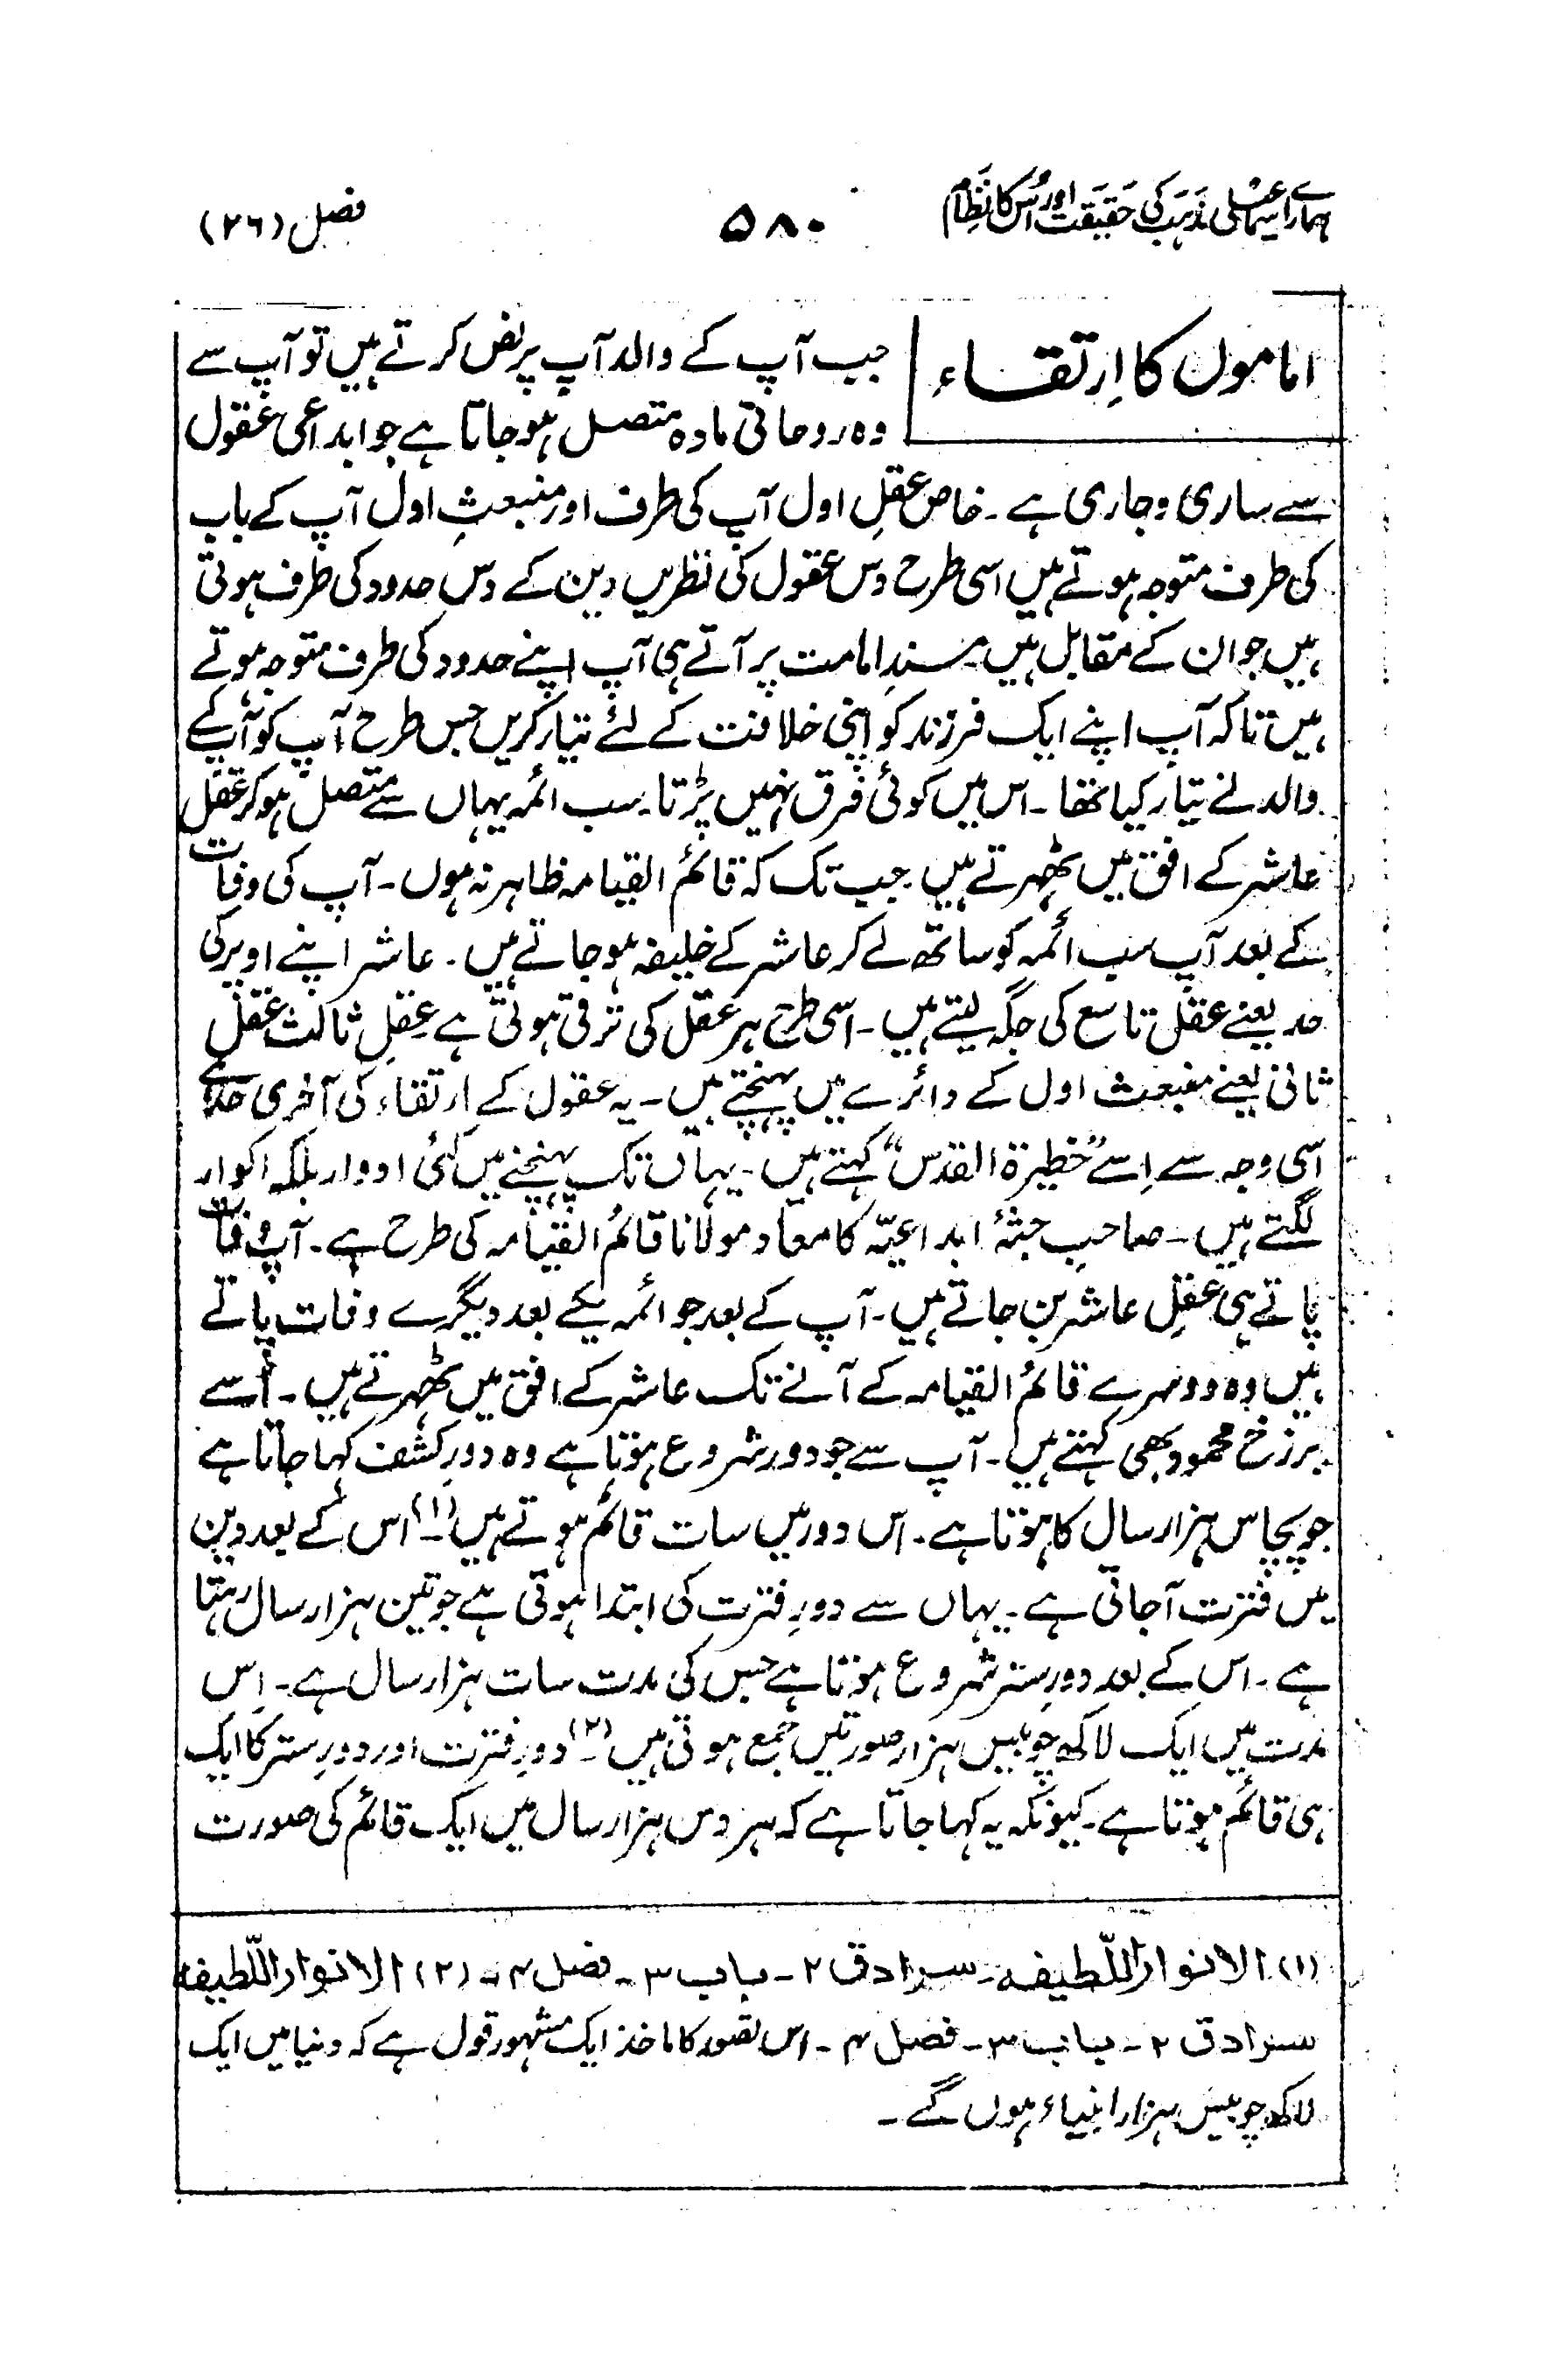 ہمارے اسماعیلی مذہب کی حقیقت اور اُس کا نظام
۵۸۰
فصل (۲۶)
اماموں کا اِرتقاء
جب آپ کے والد آپ پر نص کرتے ہیں تو آپ سے
وہ روحانی مادہ متصل ہو جاتا ہے جو ابداعی عقول
سے ساری و جاری ہے ۔ خاص عقلِ اول آپ کی طرف اور منبعثِ اول آپ کے باب
کی طرف متوجہ ہوتے ہیں اسی طرح دس عقول کی نظریں دین کے دس حدود کی طرف ہوتی
ہیں جو ان کے مقابل ہیں۔ مسندِ امامت پر آتے ہی آپ اپنے حدود کی طرف متوجہ ہوتے
ہیں تاکہ آپ اپنے ایک فرزند کو اپنی خلافت کے لئے تیار کریں جس طرح آپ کو آپ کے
والد نے تیار کیا تھا ۔ اس میں کوئی فرق نہیں پڑتا۔ سب ائمہ یہاں سے متصل ہو کر عقل
عاشر کے افق میں ٹھہرتے ہیں جب تک کہ قائم القیامہ ظاہر نہ ہوں ۔ آپ کی وفات
کے بعد آپ سب ائمہ کو ساتھ لے کر عاشر کے خلیفہ ہو جاتے ہیں ۔ عاشر اپنے اوپر کی
حد یعنے عقل تاسع کی جگہ لیتے ہیں ۔ اسی طرح ہر عقل کی ترقی ہوتی ہے عقلِ ثالث عقل
ثانی یعنے منبعث اول کے دائرے میں پہنچتے ہیں ۔ یہ عقول کے ارتقاء کی آخری حد ہے
اسی وجہ سے اِسے ”حظیرۃ القدس“ کہتے ہیں ۔ یہاں تک پہنچنے میں کئی ادوار بلکہ اکوار
لگتے ہیں ۔ صاحبِ جثۂ ابداعیّہ کا معاد مولانا قائم القیامہ کی طرح ہے ۔ آپ وفات
پاتے ہی عقلِ عاشر بن جاتے ہیں ۔ آپ کے بعد جو ائمہ یکے بعد دیگرے وفات پاتے
ہیں وہ دوسرے قائم القیامہ کے آنے تک عاشر کے افق میں ٹھہرتے ہیں ۔ اُسے
برزخ محمود بھی کہتے ہیں ۔ آپ سے جو دور شروع ہوتا ہے وہ دورِ کشف کہا جاتا ہے
جو پچاس ہزار سال کا ہوتا ہے ۔ اس دور میں سات قائم ہوتے ہیں (۱)۔ اس کے بعد دین
میں فترت آجاتی ہے ۔ یہاں سے دورِ فترت کی ابتدا ہوتی ہے جو تین ہزار سال رہتا
ہے ۔ اس کے بعد دورِ ستر شروع ہوتا ہے جس کی مدت سات ہزار سال ہے ۔ اِس
مدت میں ایک لاکھ چوبیس ہزار صورتیں جمع ہوتی ہیں (۲)۔ دورِ فترت اور دورِ ستر کا ایک
ہی قائم ہوتا ہے ۔ کیونکہ یہ کہا جاتا ہے کہ ہر دس ہزار سال میں ایک قائم کی صورت
(۱) الانوار اللّطیفہ ۔ سرادق ۲ ۔ باب ۳ ۔ فصل ۴ ۔ (۲) الانوار اللّطیفہ
سرادق ۲ ۔ باب ۳ ۔ فصل ۴ ۔ اس تصور کا ماخذ ایک مشہور قول ہے کہ دنیا میں ایک
لاکھ چوبیس ہزار انبیاء ہوں گے ۔